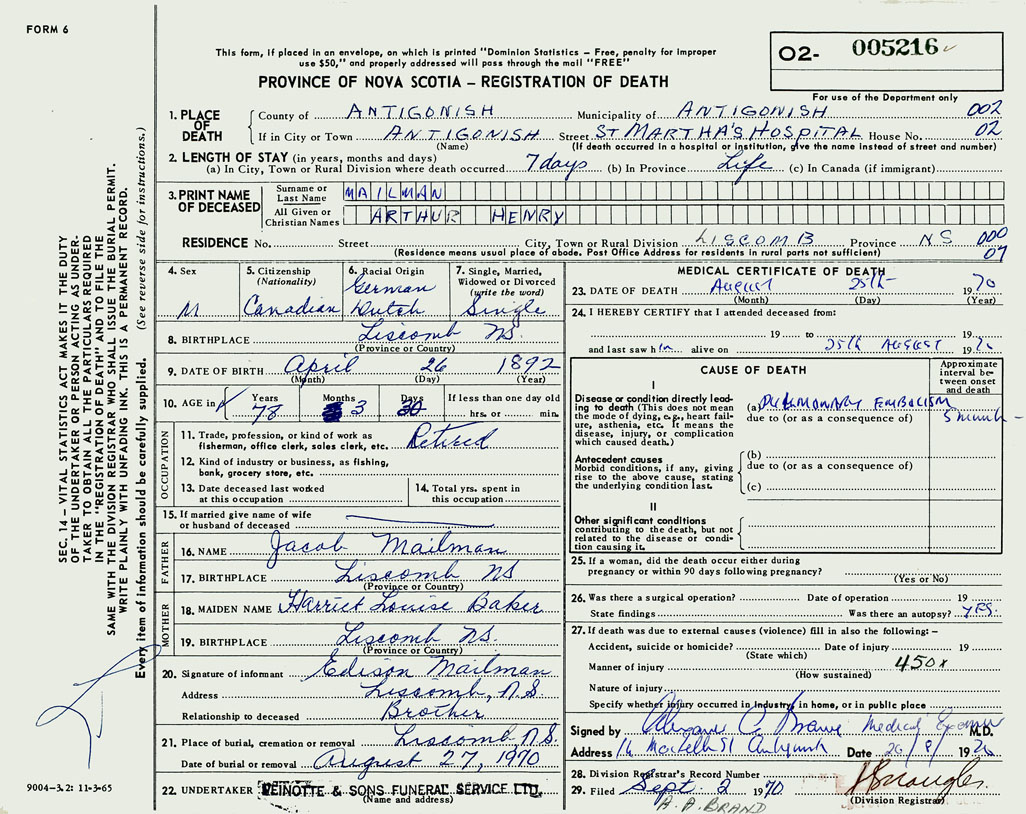 FORM 6
This form, if placed in an envelope, on which is printed "Dominion Statistics – Free, penalty for improper
use $50," and properly addressed will pass through the mail "FREE"
PROVINCE OF NOVA SCOTIA – REGISTRATION OF DEATH
O2- 005216
For use of the Department only
SEC. 14 – VITAL STATISTICS ACT MAKES IT THE DUTY
OF THE UNDERTAKER OR PERSON ACTING AS UNDER-
TAKER TO OBTAIN ALL THE PARTICULARS REQUIRED
IN THE "REGISTRATION OF DEATH" AND TO FILE THE
SAME WITH THE DIVISION REGISTRAR WHO SHALL ISSUE THE BURIAL PERMIT.
WRITE PLAINLY WITH UNFADING INK. THIS IS A PERMANENT RECORD.
Every item of information should be carefully supplied. (See reverse side for instructions.)
1. PLACE OF DEATH
County of ANTIGONISH Municipality of ANTIGONISH 002
If in City or Town ANTIGONISH Street ST MARTHA'S HOSPITAL House No. 02
(Name) (If death occurred in a hospital or institution, give the name instead of street and number)
2. LENGTH OF STAY (in years, months and days)
(a) In City, Town or Rural Division where death occurred 7 days (b) In Province Life (c) In Canada (if immigrant)
3. PRINT NAME OF DECEASED
Surname or Last Name MAILMAN
All Given or Christian Names ARTHUR HENRY
RESIDENCE No. Street City, Town or Rural Division LISCOMB Province NS 000
(Residence means usual place of abode. Post Office Address for residents in rural parts not sufficient) 07
4. Sex M
5. Citizenship (Nationality) Canadian
6. Racial Origin German Dutch
7. Single, Married, Widowed or Divorced (write the word) Single
8. BIRTHPLACE Liscomb NS.
(Province or Country)
9. DATE OF BIRTH April 26 1892
(Month) (Day) (Year)
10. AGE in Years 78 Months 3 Days 30 If less than one day old
hrs. or min.
OCCUPATION
11. Trade, profession, or kind of work as
fisherman, office clerk, sales clerk, etc. Retired
12. Kind of industry or business, as fishing,
bank, grocery store, etc.
13. Date deceased last worked
at this occupation
14. Total yrs. spent in
this occupation
15. If married give name of wife
or husband of deceased
FATHER
16. NAME Jacob Mailman
17. BIRTHPLACE Liscomb NS
(Province or Country)
MOTHER
18. MAIDEN NAME Harriet Louise Baker
19. BIRTHPLACE Liscomb NS.
(Province or Country)
20. Signature of informant Edison Mailman
Address Liscomb, N.S.
Relationship to deceased Brother
21. Place of burial, cremation or removal Liscomb N.S.
Date of burial or removal August 27, 1970
22. UNDERTAKER & SONS FUNERAL SERVICE LTD.
(Name and address)
9004-3.2: 11-3-65
MEDICAL CERTIFICATE OF DEATH
23. DATE OF DEATH August 25th 1970
(Month) (Day) (Year)
24. I HEREBY CERTIFY that I attended deceased from:
19 to 19
and last saw him alive on 25th AUGUST 1970
CAUSE OF DEATH
Approximate interval between onset and death
I
Disease or condition directly lead-
ing to death (This does not mean
the mode of dying, e.g., heart fail-
ure, asthenia, etc. It means the
disease, injury, or complication
which caused death.)
(a) PULMONARY EMBOLISM
due to (or as a consequence of)
Antecedent causes
Morbid conditions, if any, giving
rise to the above cause, stating
the underlying condition last.
(b)
due to (or as a consequence of)
(c)
II
Other significant conditions
contributing to the death, but not
related to the disease or condi-
tion causing it.
25. If a woman, did the death occur either during
pregnancy or within 90 days following pregnancy?
(Yes or No)
26. Was there a surgical operation? Date of operation 19
State findings Was there an autopsy? YES.
27. If death was due to external causes (violence) fill in also the following: –
Accident, suicide or homicide? Date of injury 19
(State which)
Manner of injury 450x
(How sustained)
Nature of injury
Specify whether injury occurred in Industry, in home, or in public place
Signed by Medical M.D.
Address Date 26/8/ 1970
28. Division Registrar's Record Number
29. Filed Sept. 2 1970
(Division Registrar)
A. A. BRAND